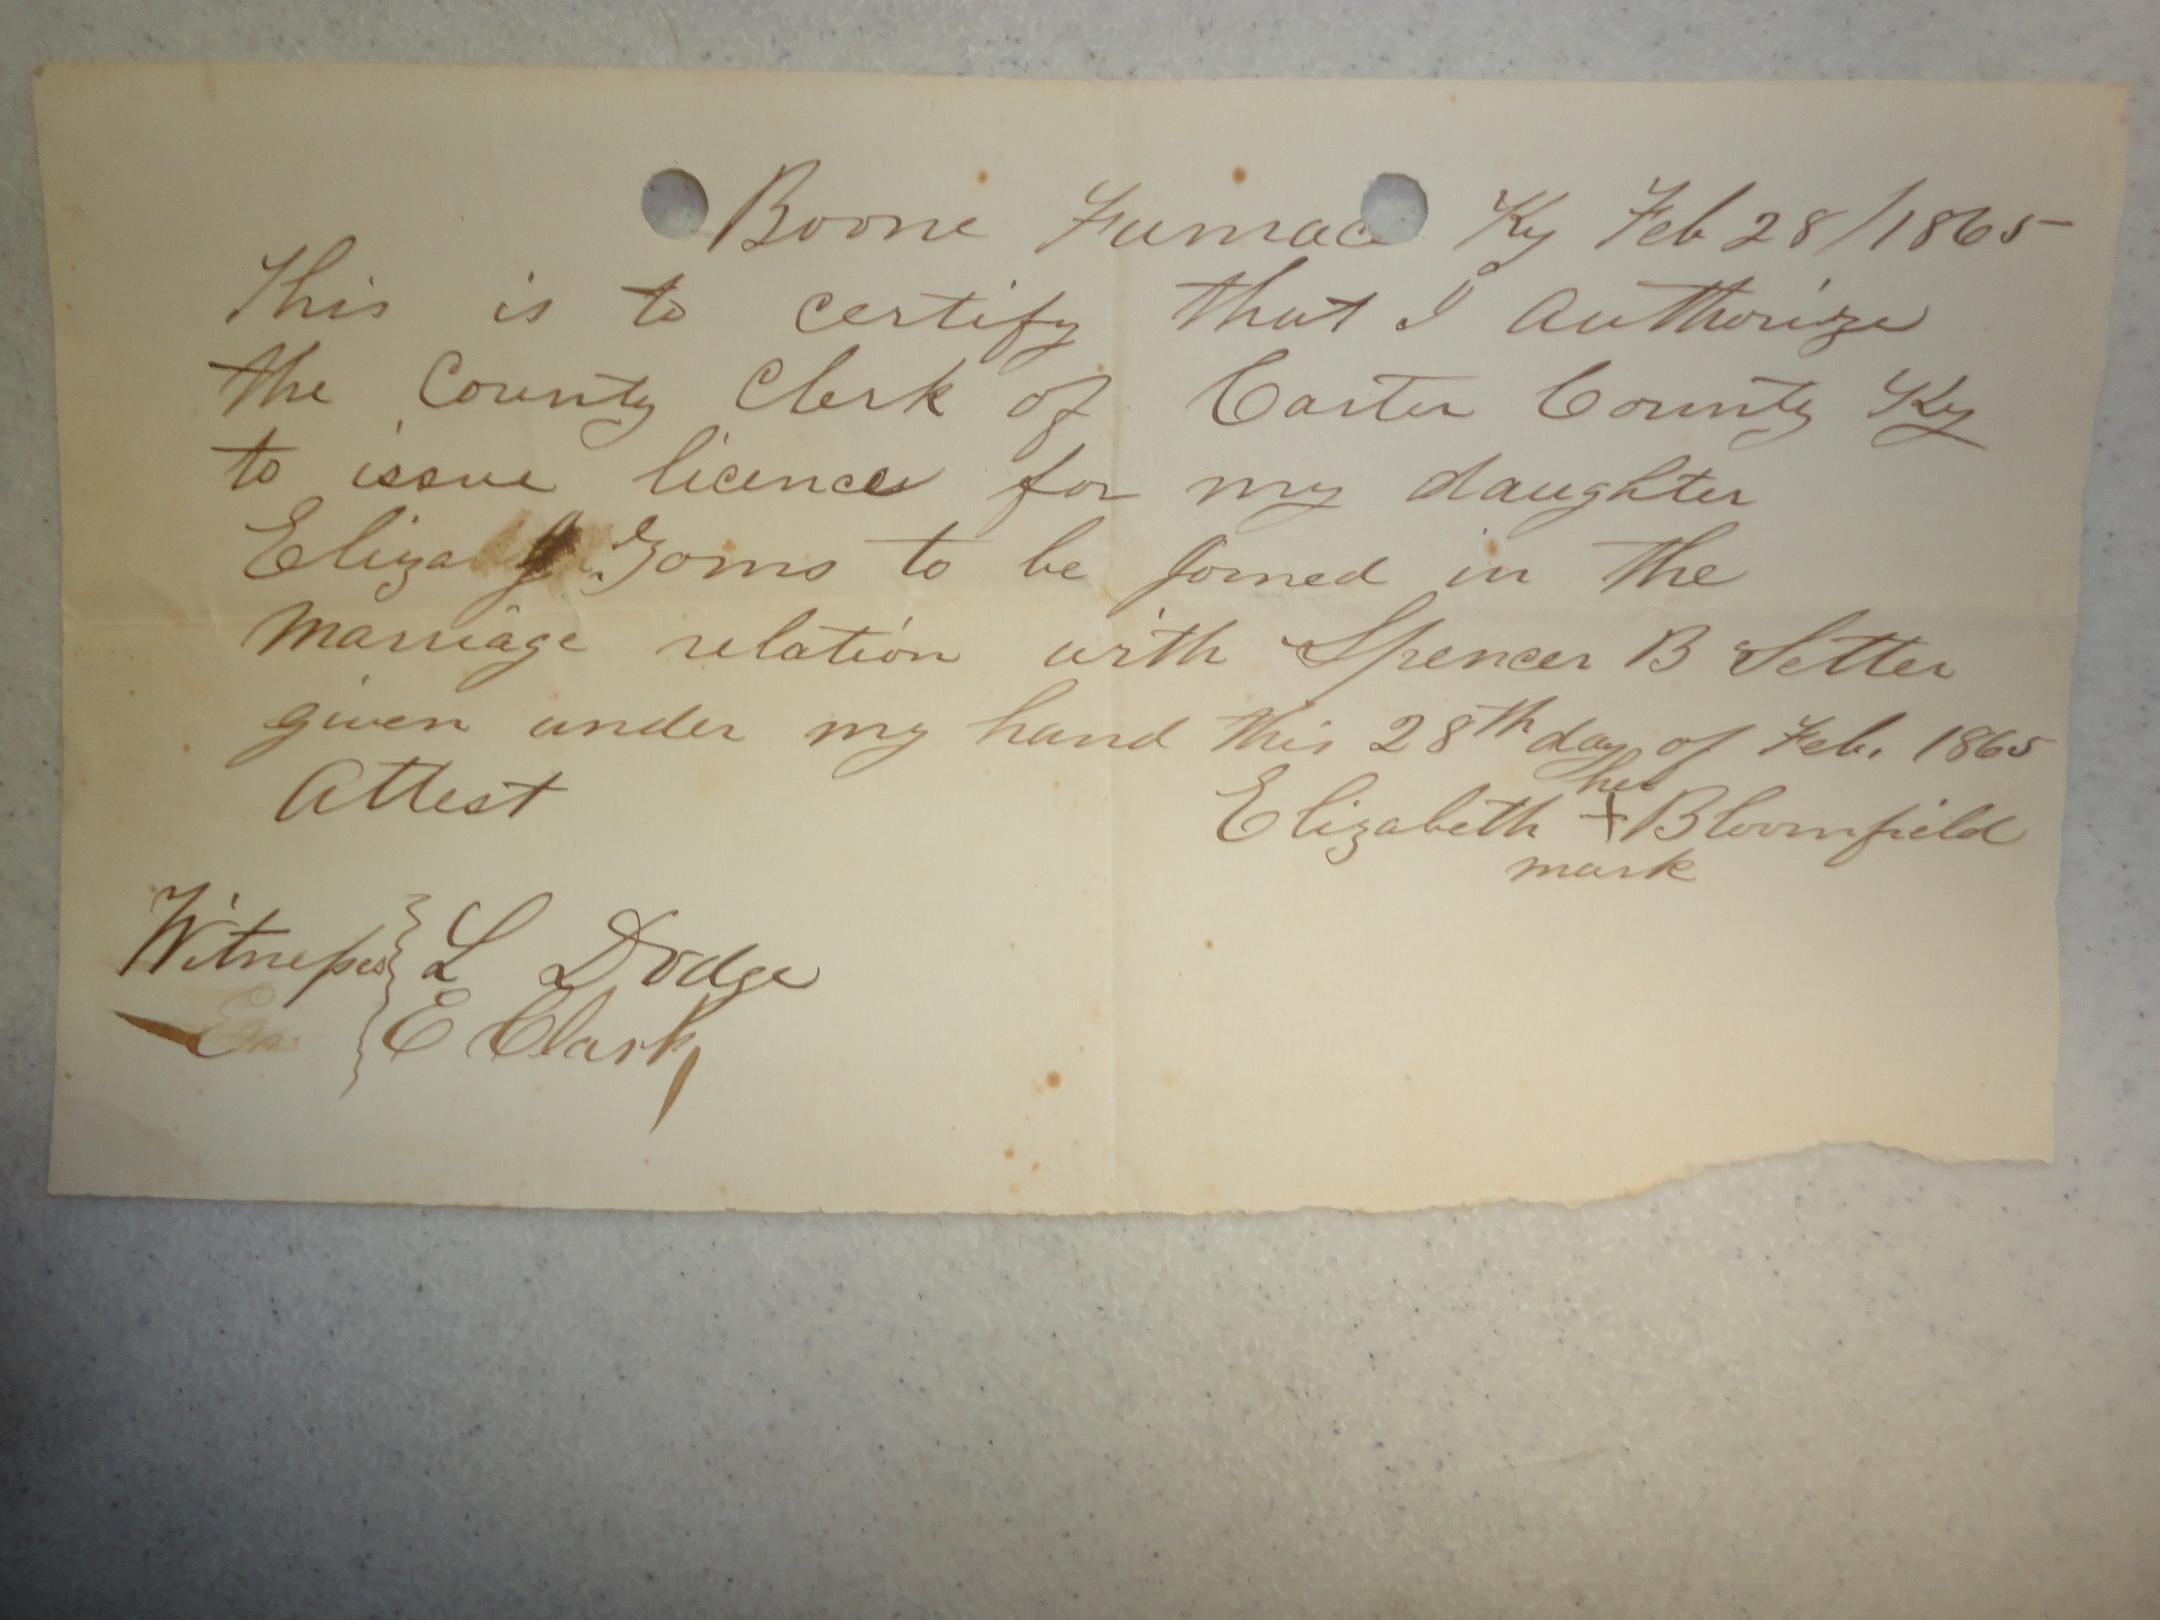 Boone Furnace Ky Feb 28/1865
This is to certify that I authorize
the County Clerk of Carter County Ky
to issue licences for my daughter
Eliza J. Goms to be Joined in the
marriage relation with Spencer B Setter
given under my hand this 28th day of Feb. 1865
Attest
her
Elizabeth + Bloomfield
mark
Witnesses L Dodge
E Clark